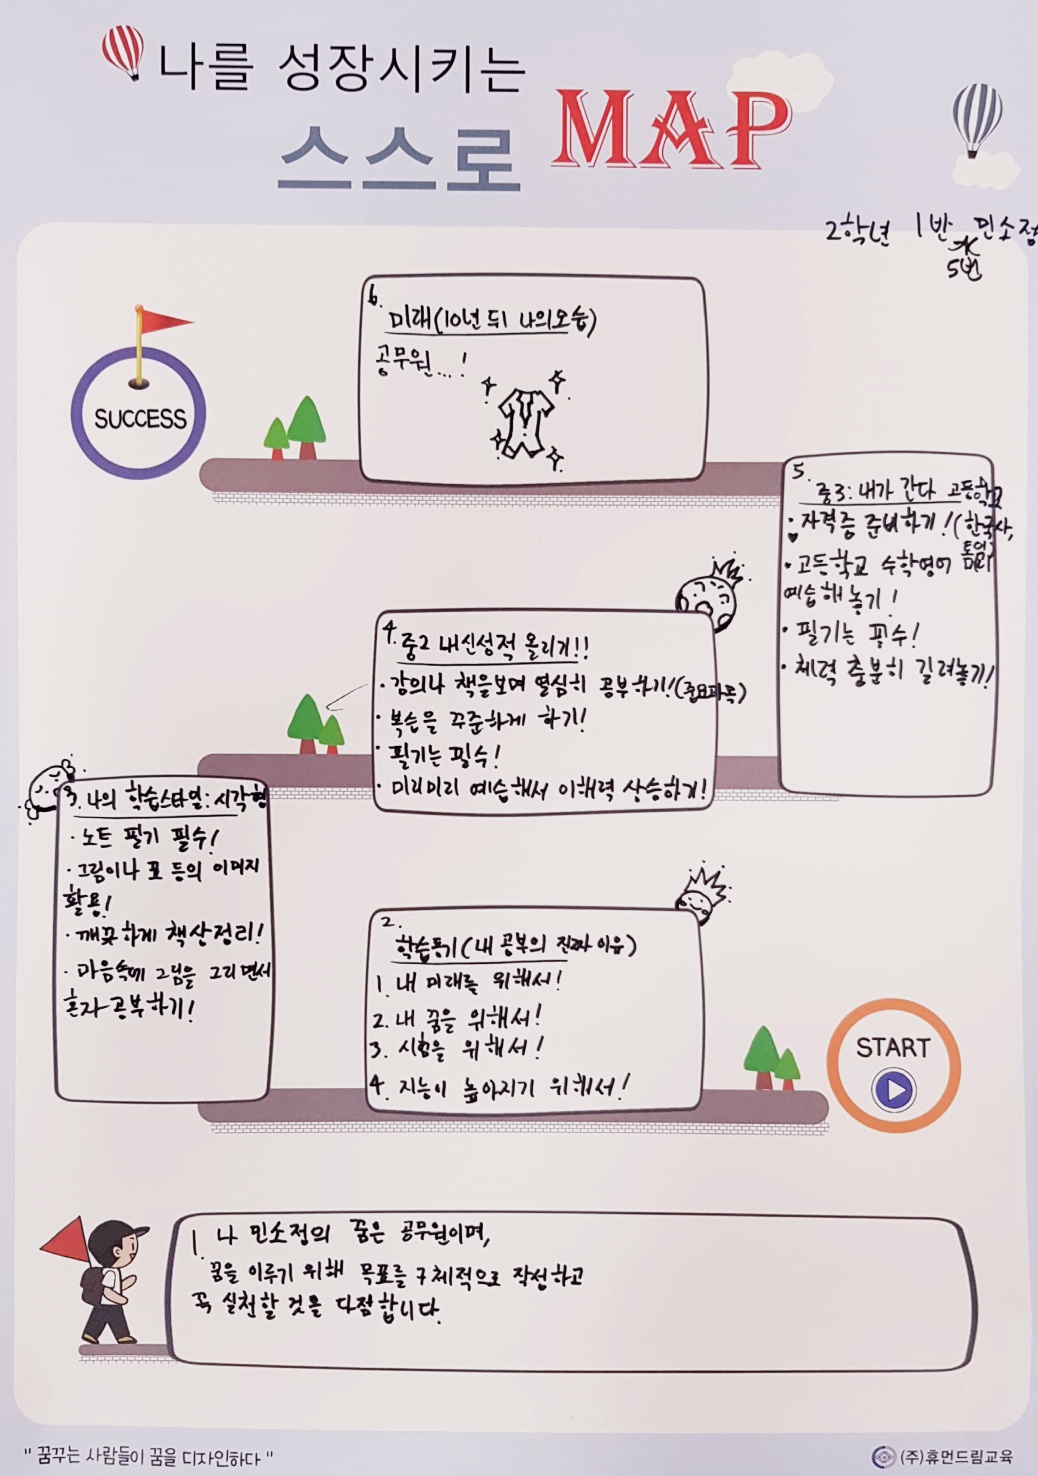 나를 성장시키는
스스로 MAP
2학년 1반 민소정
5번
6.
미래(10년 뒤 나의모습)
공무원...!
SUCCESS
5.
중3: 내가 간다 고등학교
· 자격증 준비하기! (한국사,
토익)
· 고등학교 수학영어 미리
예습해 놓기!
· 필기는 필수!
· 체력 충분히 길러놓기!
4. 중2 내신성적 올리기!!
· 강의나 책을보며 열심히 공부하기! (중요과목)
· 복습을 꾸준하게 하기!
· 필기는 필수!
· 미리미리 예습해서 이해력 상승하기!
3. 나의 학습스타일: 시각형
· 노트 필기 필수!
· 그림이나 표 등의 이미지
활용!
· 깨끗하게 책상정리!
· 마음속에 그림을 그리면서
혼자 공부하기!
2.
학습동기(내 공부의 진짜 이유)
1. 내 미래를 위해서!
2. 내 꿈을 위해서!
3. 시험을 위해서!
4. 지능이 높아지기 위해서!
START
1. 나 민소정의 꿈은 공무원이며,
꿈을 이루기 위해 목표를 구체적으로 작성하고
꼭 실천할 것을 다짐합니다.
" 꿈꾸는 사람들이 꿈을 디자인하다 "
(주)휴먼드림교육